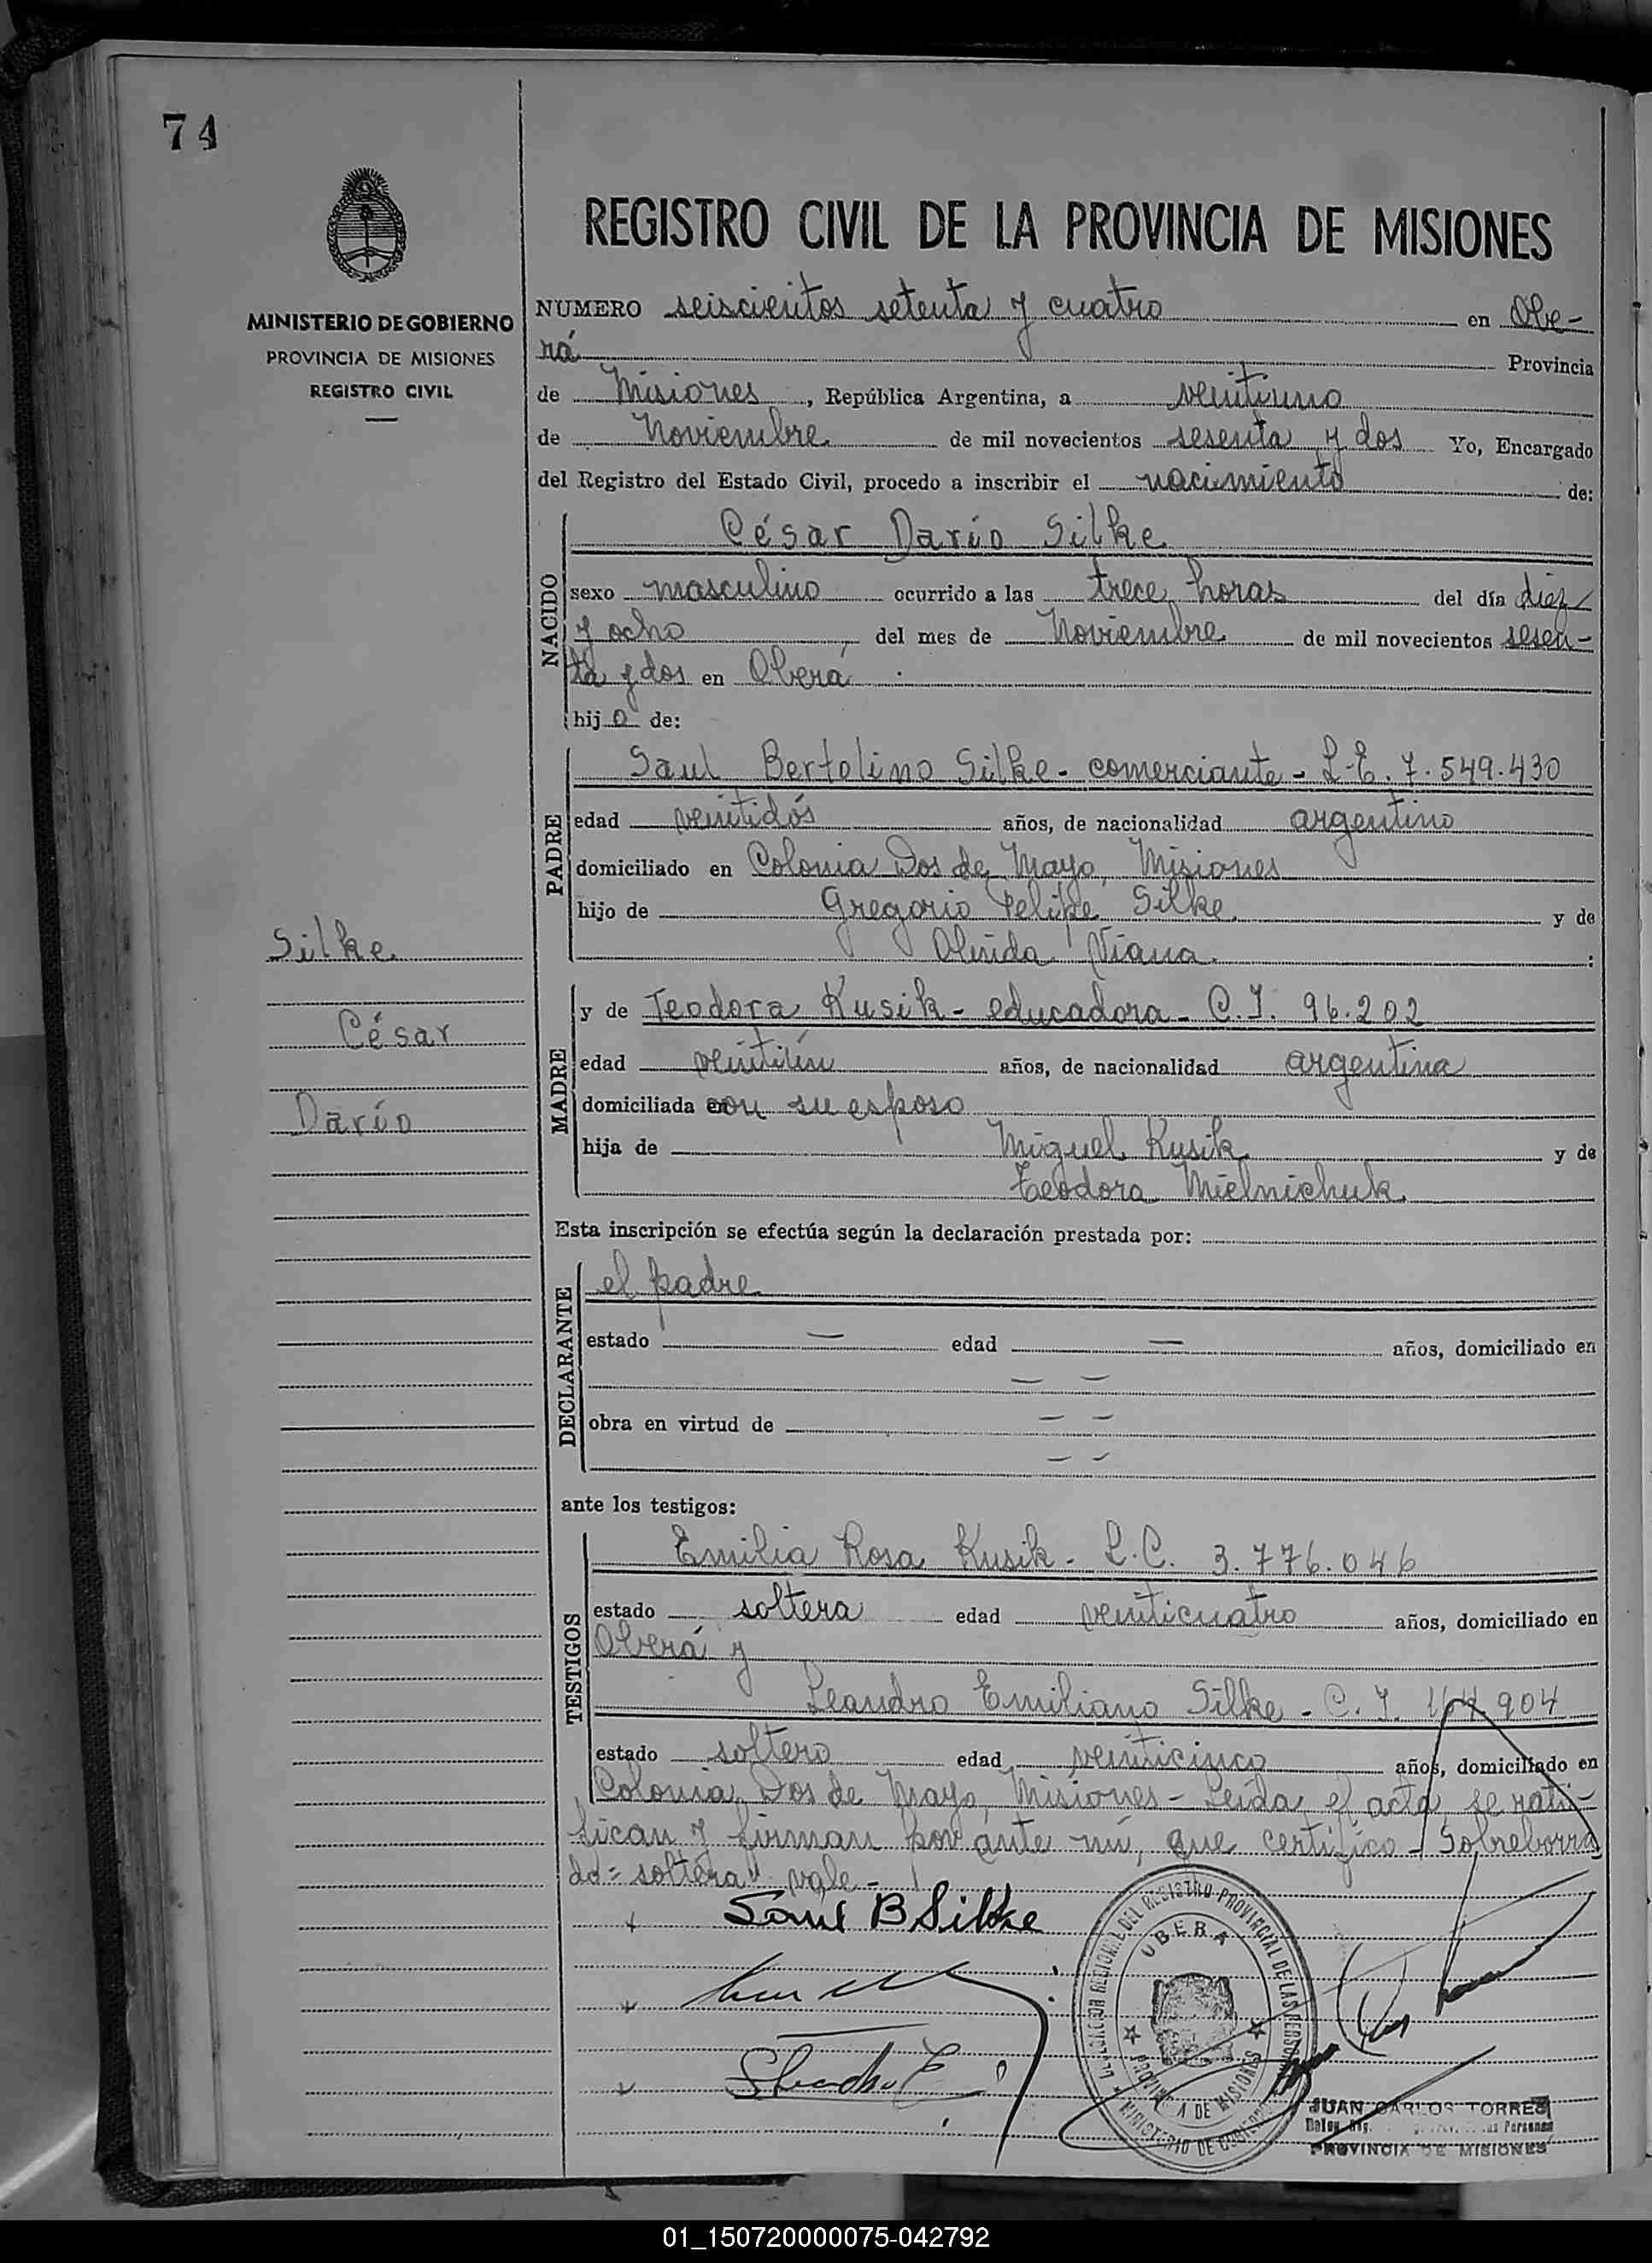 74
MINISTERIO DE GOBIERNO
PROVINCIA DE MISIONES
REGISTRO CIVIL
REGISTRO CIVIL DE LA PROVINCIA DE MISIONES
NUMERO seiscientos setenta y cuatro en Obe-
rá Provincia
de Misiones, República Argentina, a veintiuno
de Noviembre de mil novecientos sesenta y dos Yo, Encargado
del Registro del Estado Civil, procedo a inscribir el nacimiento de:
NACIDO
César Darío Silke
sexo masculino ocurrido a las trece horas del día diez
y ocho del mes de Noviembre de mil novecientos sesen-
ta y dos en Oberá
hijo de:
PADRE
Saul Bertolino Silke - comerciante - L.E. 7.549.430
edad veintidós años, de nacionalidad argentino
domiciliado en Colonia Dos de Mayo, Misiones
hijo de Gregorio Felipe Silke y de
Olinda Viana :
Silke
César
Darío
MADRE
y de Teodora Kusik - educadora - C.I. 96.202
edad veintiún años, de nacionalidad argentina
domiciliada con su esposo
hija de Miguel Kusik y de
Teodora Mielnichuk
Esta inscripción se efectúa según la declaración prestada por:
DECLARANTE
el padre
estado — edad — años, domiciliado en
— —
obra en virtud de — —
— —
ante los testigos:
TESTIGOS
Emilia Rosa Kusik - L.C. 3.776.046
estado soltera edad veinticuatro años, domiciliado en
Oberá y
Leandro Emiliano Silke - C.I. 904
estado soltero edad veinticinco años, domiciliado en
Colonia Dos de Mayo, Misiones - Leída el acta, se rati-
fican y firman por ante mí, que certifico - Sobreborra
do = soltera" vale -
Saul B Silke
OBERA
PROVINCIA DE MISIONES
JUAN CARLOS TORRES
PROVINCIA DE MISIONES
01_150720000075-042792